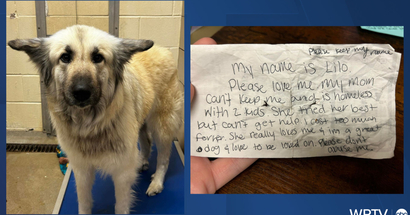 Please keep my name
My name is Lilo
Please love me my mom
can't keep me and is homeless
with 2 kids She tried her best
but can't get help I cost too much
for her She really loves me & im a great
dog & love to be loved on Please don't
abuse me
WRTV